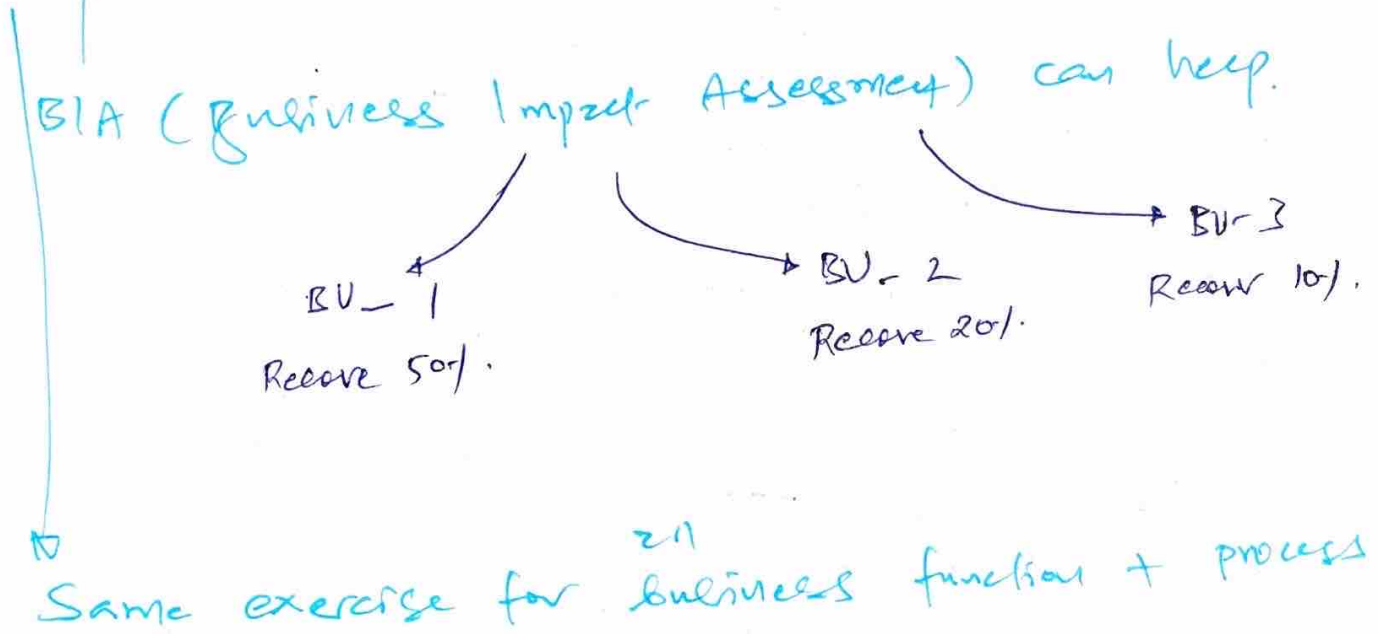 BIA (Business Impact Assessment) can help.
BU-3
Recover 10%.
BU-2
Recove 20%.
BU-1
Recove 50%.
all
Same exercise for business function + process